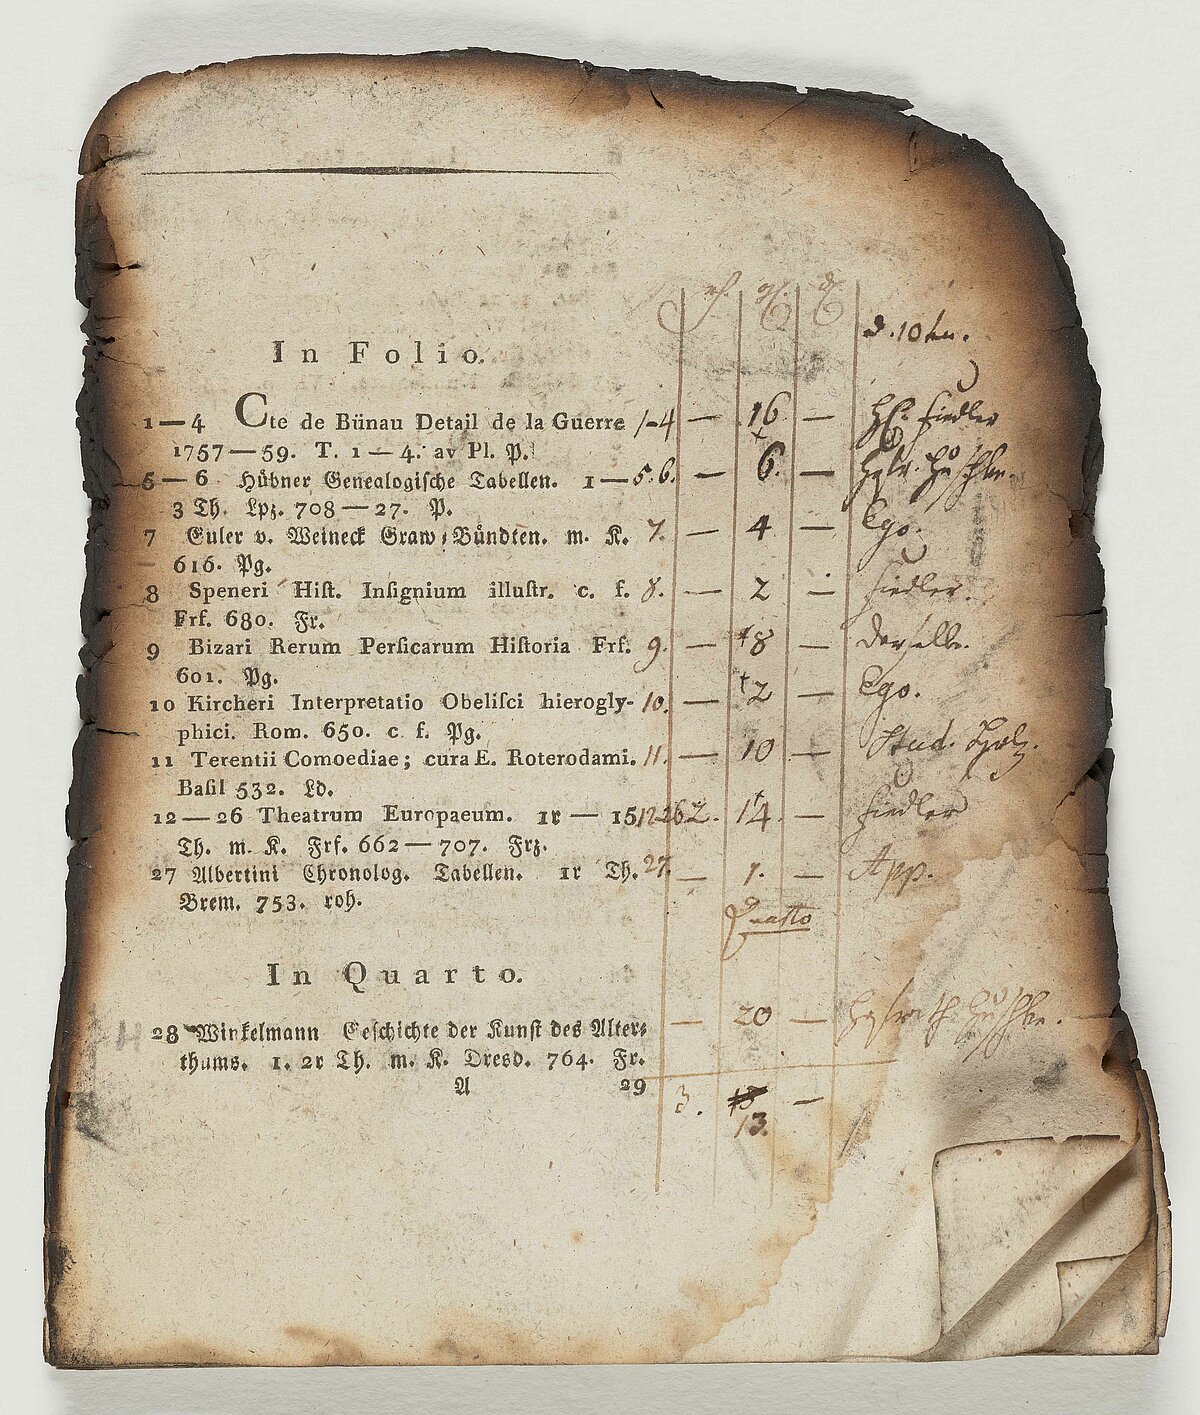 rh. gl. d.
d. 10
In Folio.
1—4 Cte de Bünau Detail de la Guerre 1-4 — 16 — H. Fiedler
1757—59. T. 1—4. av Pl. P.
5—6 Hübner Genealogische Tabellen. 1— 5.6. — 6. —
3 Th. Lpz. 708—27. P.
7 Euler v. Weineck Graw-Bündten. m. K. 7. — 4 — Ego.
616. Pg.
8 Speneri Hiſt. Inſignium illuſtr. c. f. 8. — 2 — Fiedler.
Frf. 680. Fr.
9 Bizari Rerum Perſicarum Hiſtoria Frf. 9. — 8 — Derselbe.
601. Pg.
10 Kircheri Interpretatio Obeliſci hierogly- 10. — 2 — Ego.
phici. Rom. 650. c. f. Pg.
11 Terentii Comoediae; cura E. Roterodami. 11. — 10 — Stud.
Baſil 532. Ld.
12—26 Theatrum Europaeum. 1r — 15 12-26 2. 14 — Fiedler
Th. m. K. Frf. 662—707. Frz.
27 Albertini Chronolog. Tabellen. 1r Th. 27. — 1. — App.
Brem. 753. roh.
Quarto
In Quarto.
28 Winkelmann Geſchichte der Kunſt des Alter- — 20 —
thums. 1. 2r Th. m. K. Dresd. 764. Fr.
A 29
3. 18 —
13.